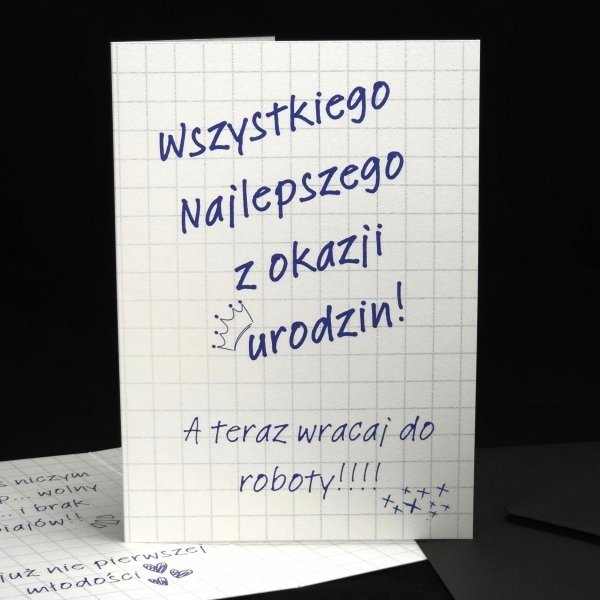 Wszystkiego
Najlepszego
z okazji
urodzin!
A teraz wracaj do
roboty!!!!
niczym
wolny
... i brak
już nie pierwszej
młodości